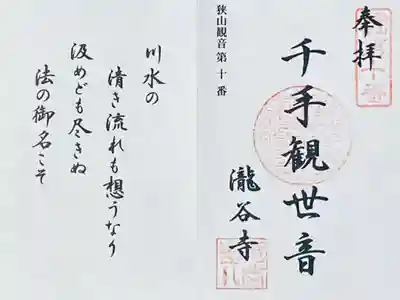 奉拝
千手観世音
瀧谷寺
狭山観音第十番
川水の
清き流れも想うなり
汲めども尽きぬ
法の御名こそ